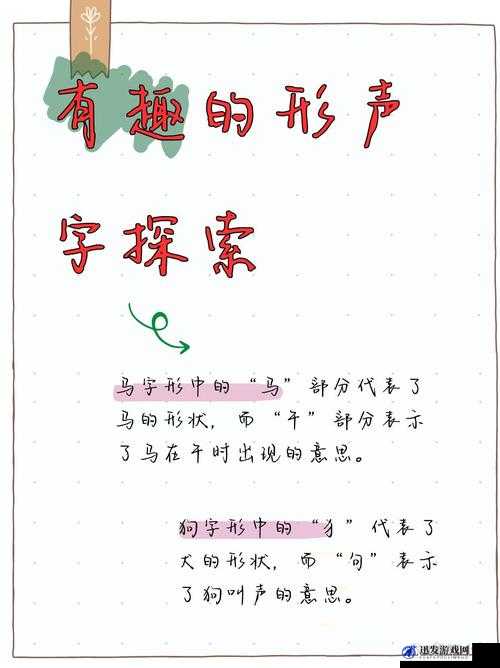 有趣的形声
字探索
马字形中的“马”部分代表了
马的形状，而“午”部分表示
了马在午时出现的意思。
狗字形中的“犭”代表了
犬的形状，而“句”表示
了狗叫声的意思。
迅发游戏网